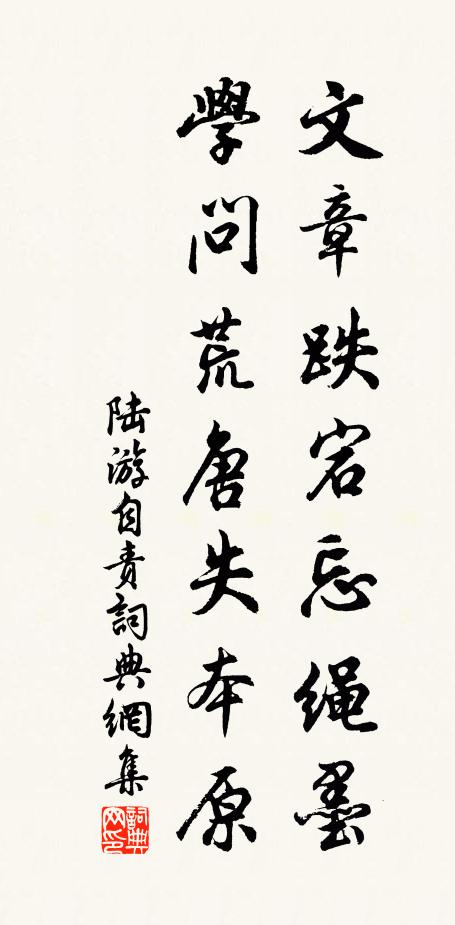 文章跌宕忘绳墨
學問荒唐失本原
陆游自责詞典網集
詞典网印